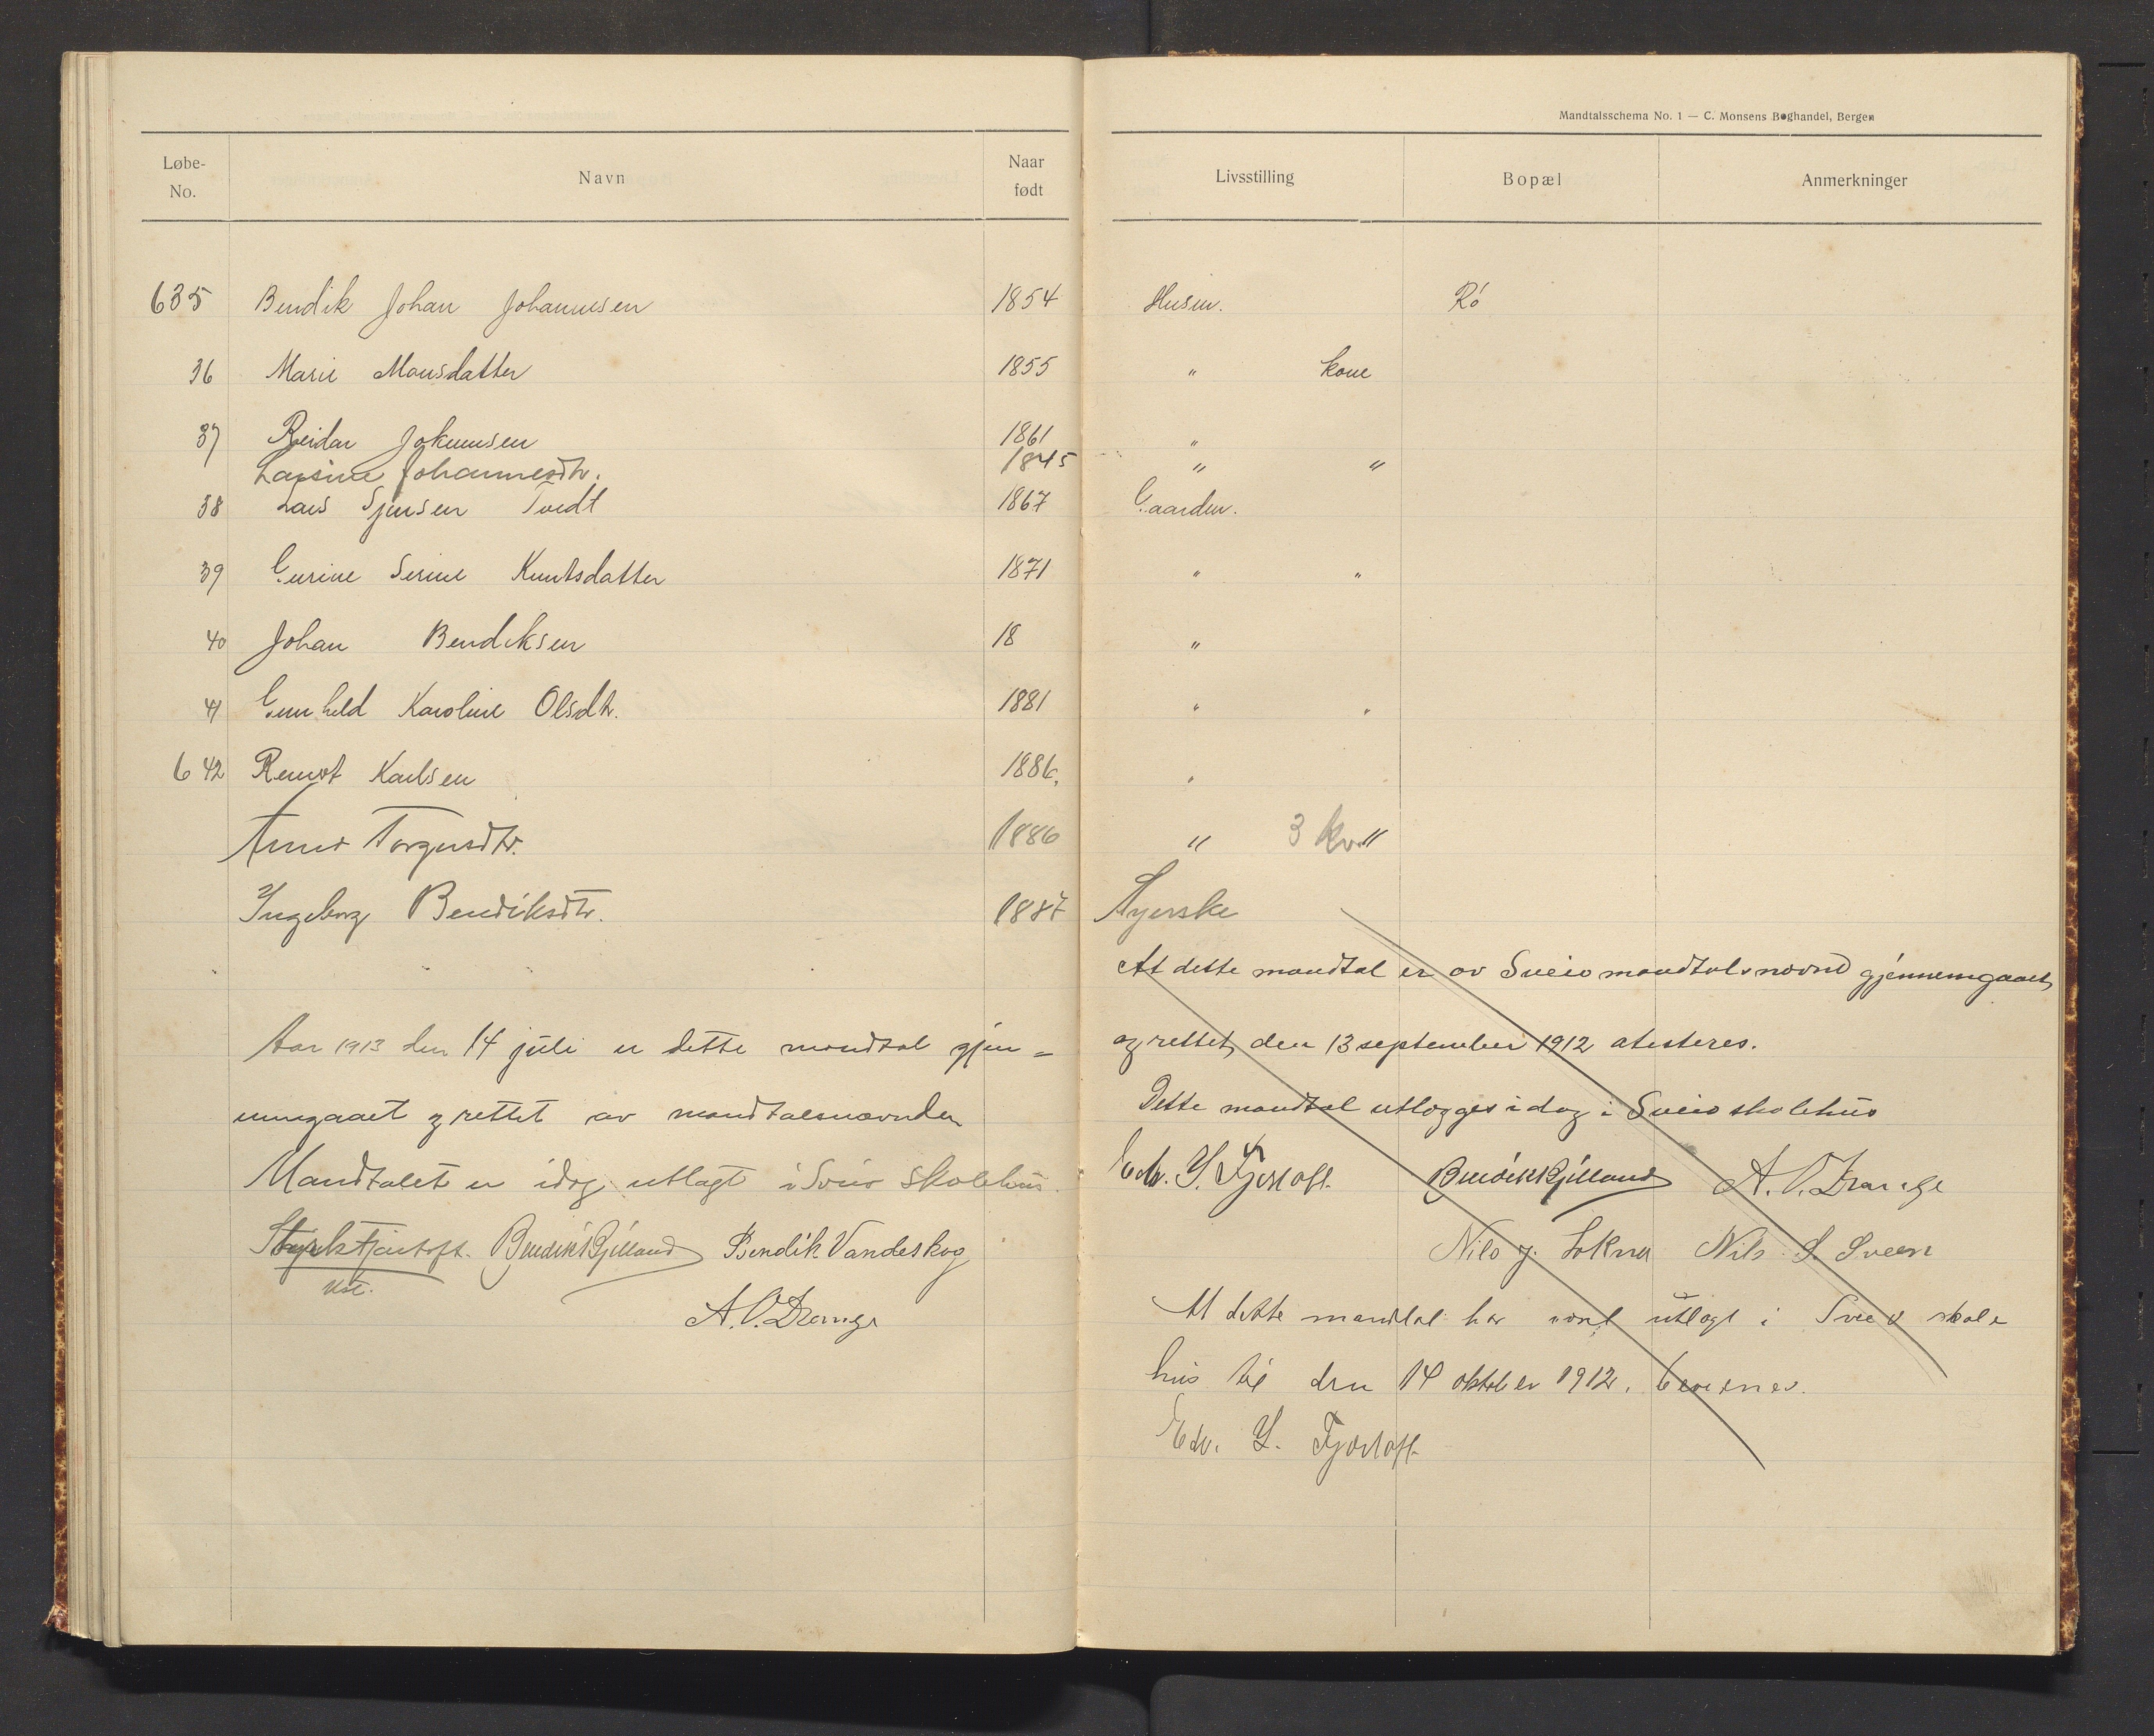 Mandtalsschema No. 1 — C. Monsens Boghandel, Bergen
Løbe-No. Navn Naar født Livsstilling Bopæl Anmerkninger
635 Bendik Johan Johannesen 1854 Husm. Rø
36 Marie Monsdatter 1855 " kone
37 Reidar Jokumsen 1861 "
Larsine Johannesdtr. 1845 " "
38 Lars Sjursen Tvedt 1867 Gaardm.
39 Gurine Serine Knutsdatter 1871 " "
40 Johan Bendiksen 18 "
41 Gunhild Karoline Olsdtr. 1881 " "
642 Karlsen 1886. "
Torgersdtr. 1886 " 3 kv. "
Ingeborg Bendiksdtr. 1887 Syerske
Aar 1913 den 14 juli er dette mandtal gjen=
nemgaaet og rettet av mandtalsnævnden
Mandtalet er idag utlagt i Sveio skolehus.
Styrk Fjortoft. Bendik Gjilland Bendik Vandeskog
A. O. Drange
At dette mandtal er av Sveio mandtalsnævnd gjennemgaaet
og rettet den 13 september 1912 atesteres.
Dette mandtal utlægges idag i Sveio skolehus
Edv. Y. Fjortoft. Bendik Gjilland A. O. Drange
Nils J. Lokna Nils S. Sveen
At dette mandtal har vært utlagt i Sveio skole
hus til den 14 oktober 1912, bevidnes.
Edv. Y. Fjortoft